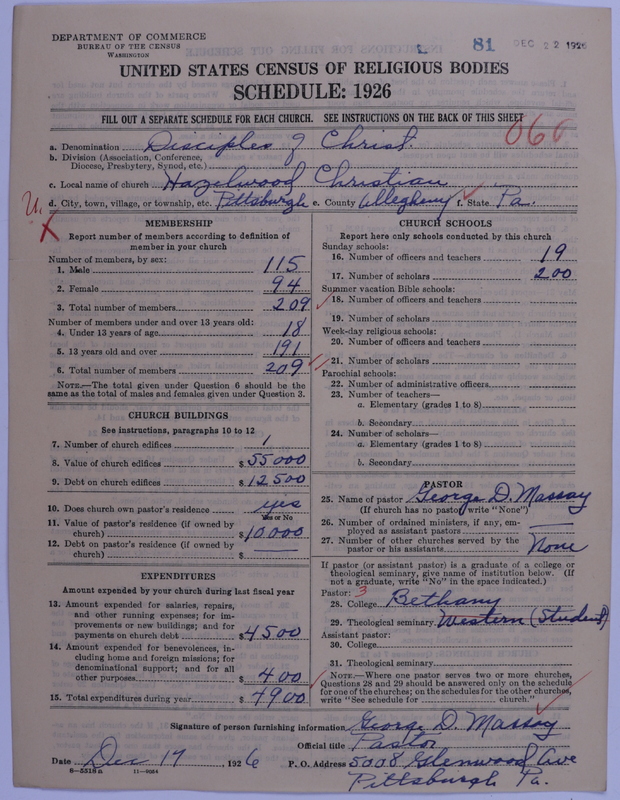 DEPARTMENT OF COMMERCE
BUREAU OF THE CENSUS
WASHINGTON
81 DEC 22 1926
UNITED STATES CENSUS OF RELIGIOUS BODIES
SCHEDULE: 1926
FILL OUT A SEPARATE SCHEDULE FOR EACH CHURCH. SEE INSTRUCTIONS ON THE BACK OF THIS SHEET
060
a. Denomination Disciples of Christ.
b. Division (Association, Conference, Diocese, Presbytery, Synod, etc.)
c. Local name of church Hazelwood Christian
d. City, town, village, or township, etc. Pittsburgh e. County Allegheny f. State Pa.
U.
X
MEMBERSHIP
Report number of members according to definition of
member in your church
Number of members, by sex:
1. Male 115
2. Female 94
3. Total number of members 209
Number of members under and over 13 years old:
4. Under 13 years of age 18
5. 13 years old and over 191
6. Total number of members 209
NOTE.—The total given under Question 6 should be
same as the total of males and females given under Question 3.
CHURCH BUILDINGS
See instructions, paragraphs 10 to 12
7. Number of church edifices 1
8. Value of church edifices $55000
9. Debt on church edifices $12500
10. Does church own pastor's residence yes
Yes or No
11. Value of pastor's residence (if owned by
church) $10,000
12. Debt on pastor's residence (if owned by
church) $
EXPENDITURES
Amount expended by your church during last fiscal year
13. Amount expended for salaries, repairs,
and other running expenses; for im-
provements or new buildings; and for
payments on church debt $4500
14. Amount expended for benevolences, in-
cluding home and foreign missions; for
denominational support; and for all
other purposes $400
15. Total expenditures during year $4900
CHURCH SCHOOLS
Report here only schools conducted by this church
Sunday schools:
16. Number of officers and teachers 19
17. Number of scholars 200
Summer vacation Bible schools:
18. Number of officers and teachers
19. Number of scholars
Week-day religious schools:
20. Number of officers and teachers
21. Number of scholars
Parochial schools:
22. Number of administrative officers
23. Number of teachers—
a. Elementary (grades 1 to 8)
b. Secondary
24. Number of scholars—
a. Elementary (grades 1 to 8)
b. Secondary
PASTOR
25. Name of pastor George D. Massay
(If church has no pastor, write "None")
26. Number of ordained ministers, if any, em-
ployed as assistant pastors
27. Number of other churches served by the
pastor or his assistants None
If pastor (or assistant pastor) is a graduate of a college or
theological seminary, give name of institution below. (If
not a graduate, write "No" in the space indicated.)
Pastor: 3
28. College Bethany
29. Theological seminary Western (Student)
Assistant pastor:
30. College
31. Theological seminary
NOTE.—Where one pastor serves two or more churches,
Questions 28 and 29 should be answered only on the schedule
for one of the churches; on the schedules for the other churches,
write "See schedule for church."
Signature of person furnishing information George D. Massay
Official title Pastor
Date Dec 17 1926 P. O. Address 5008 Glenwood Ave
8—5518a 11—9084 Pittsburgh Pa.